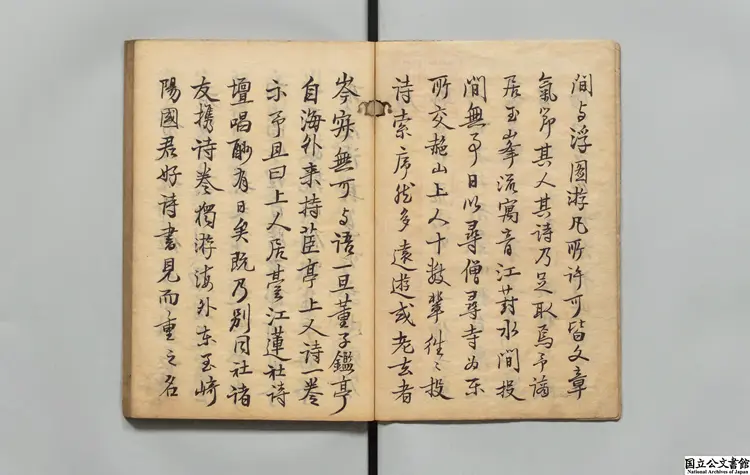 间与浮圖游凡所许可皆文章
氣节其人其诗乃足取焉予谪
居玉峯流寓音江葑水間投
閒無事日以尋僧尋寺为乐
所交趂山上人十数輩往〻投
诗索序然多遠遊或老去者
岑寂無可与语一旦董子鑑亭
自海外来持莅亭上人诗一卷
示予且曰上人居芸江蓮社诗
壇唱酬有日矣既乃别同社诸
友携诗卷獨游海外东至崎
陽國君好诗書見而重之名
国立公文書館
National Archives of Japan